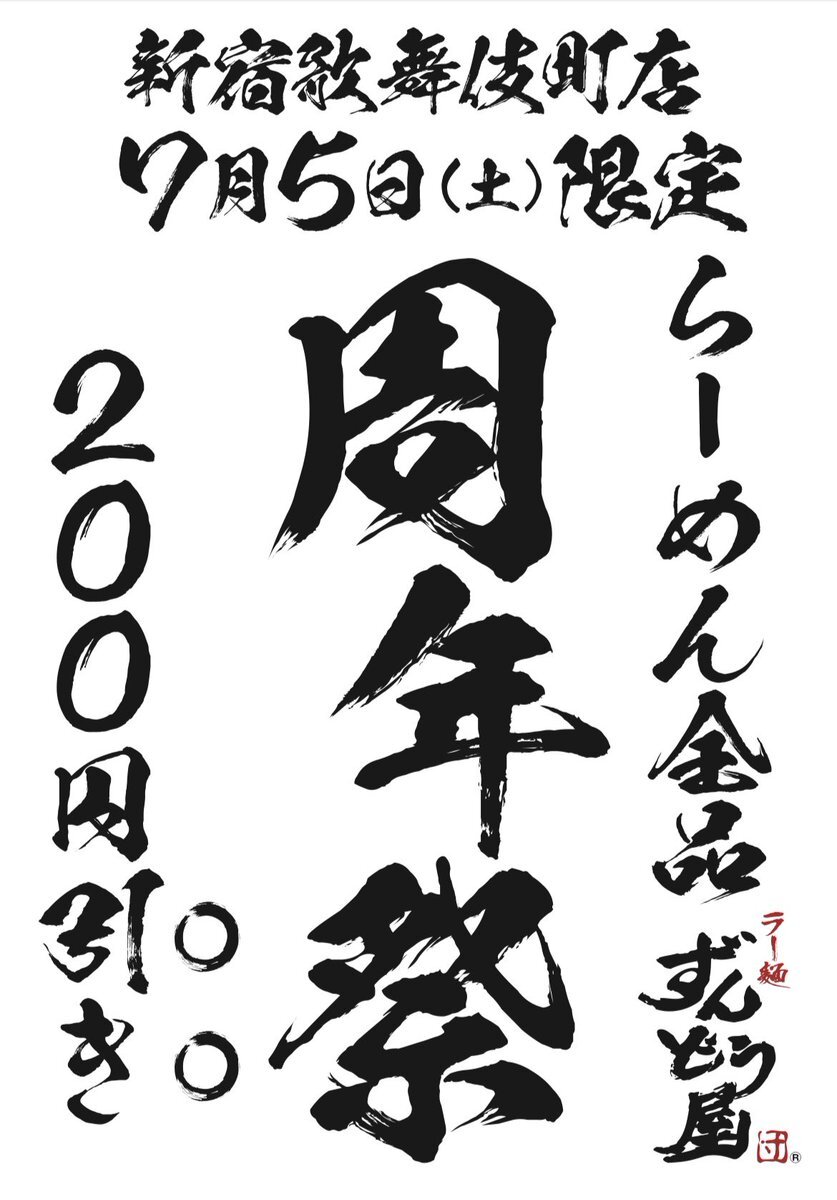 新宿歌舞伎町店
7月5日(土)限定
らーめん全品
周年祭
200円引き
○○
ラー麺
ずんどう屋
団
®